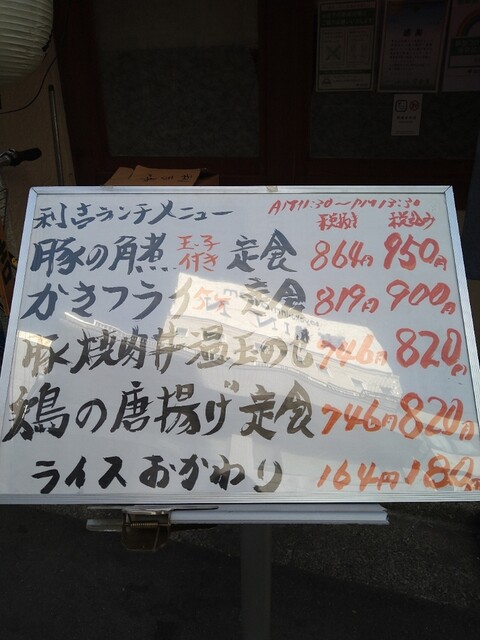 利吉ランチメニュー AM11:30〜PM13:30
税抜き 税込み
豚の角煮 玉子付き 定食 864円 950円
かきフライ 定食 819円 900円
豚焼肉丼温玉のし 746円 820円
鶏の唐揚げ定食 746円 820円
ライスおかわり 164円 180円